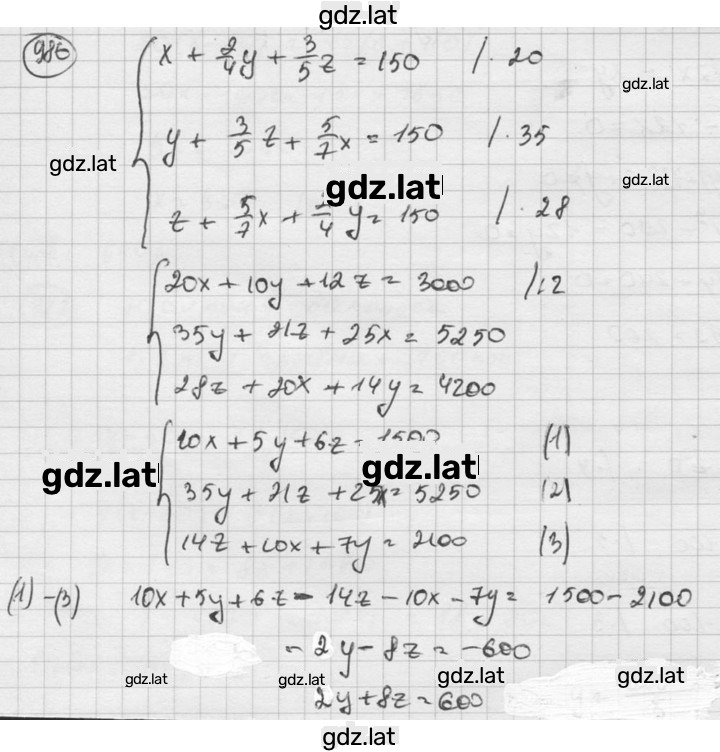 gdz.lat
986
x + 2/4 y + 3/5 z = 150 /· 20
gdz.lat
y + 3/5 z + 5/7 x = 150 /· 35
gdz.lat
gdz.lat
gdz.lat
z + 5/7 x + 2/4 y = 150 /· 28
20x + 10y + 12z = 3000 /:2
35y + 21z + 25x = 5250
28z + 20x + 14y = 4200
10x + 5y + 6z = 1500 (1)
gdz.lat
gdz.lat
35y + 21z + 25x = 5250 (2)
14z + 10x + 7y = 2100 (3)
(1) - (3) 10x + 5y + 6z - 14z - 10x - 7y = 1500 - 2100
- 2y - 8z = -600
gdz.lat gdz.lat gdz.lat gdz.lat
2y + 8z = 600
gdz.lat